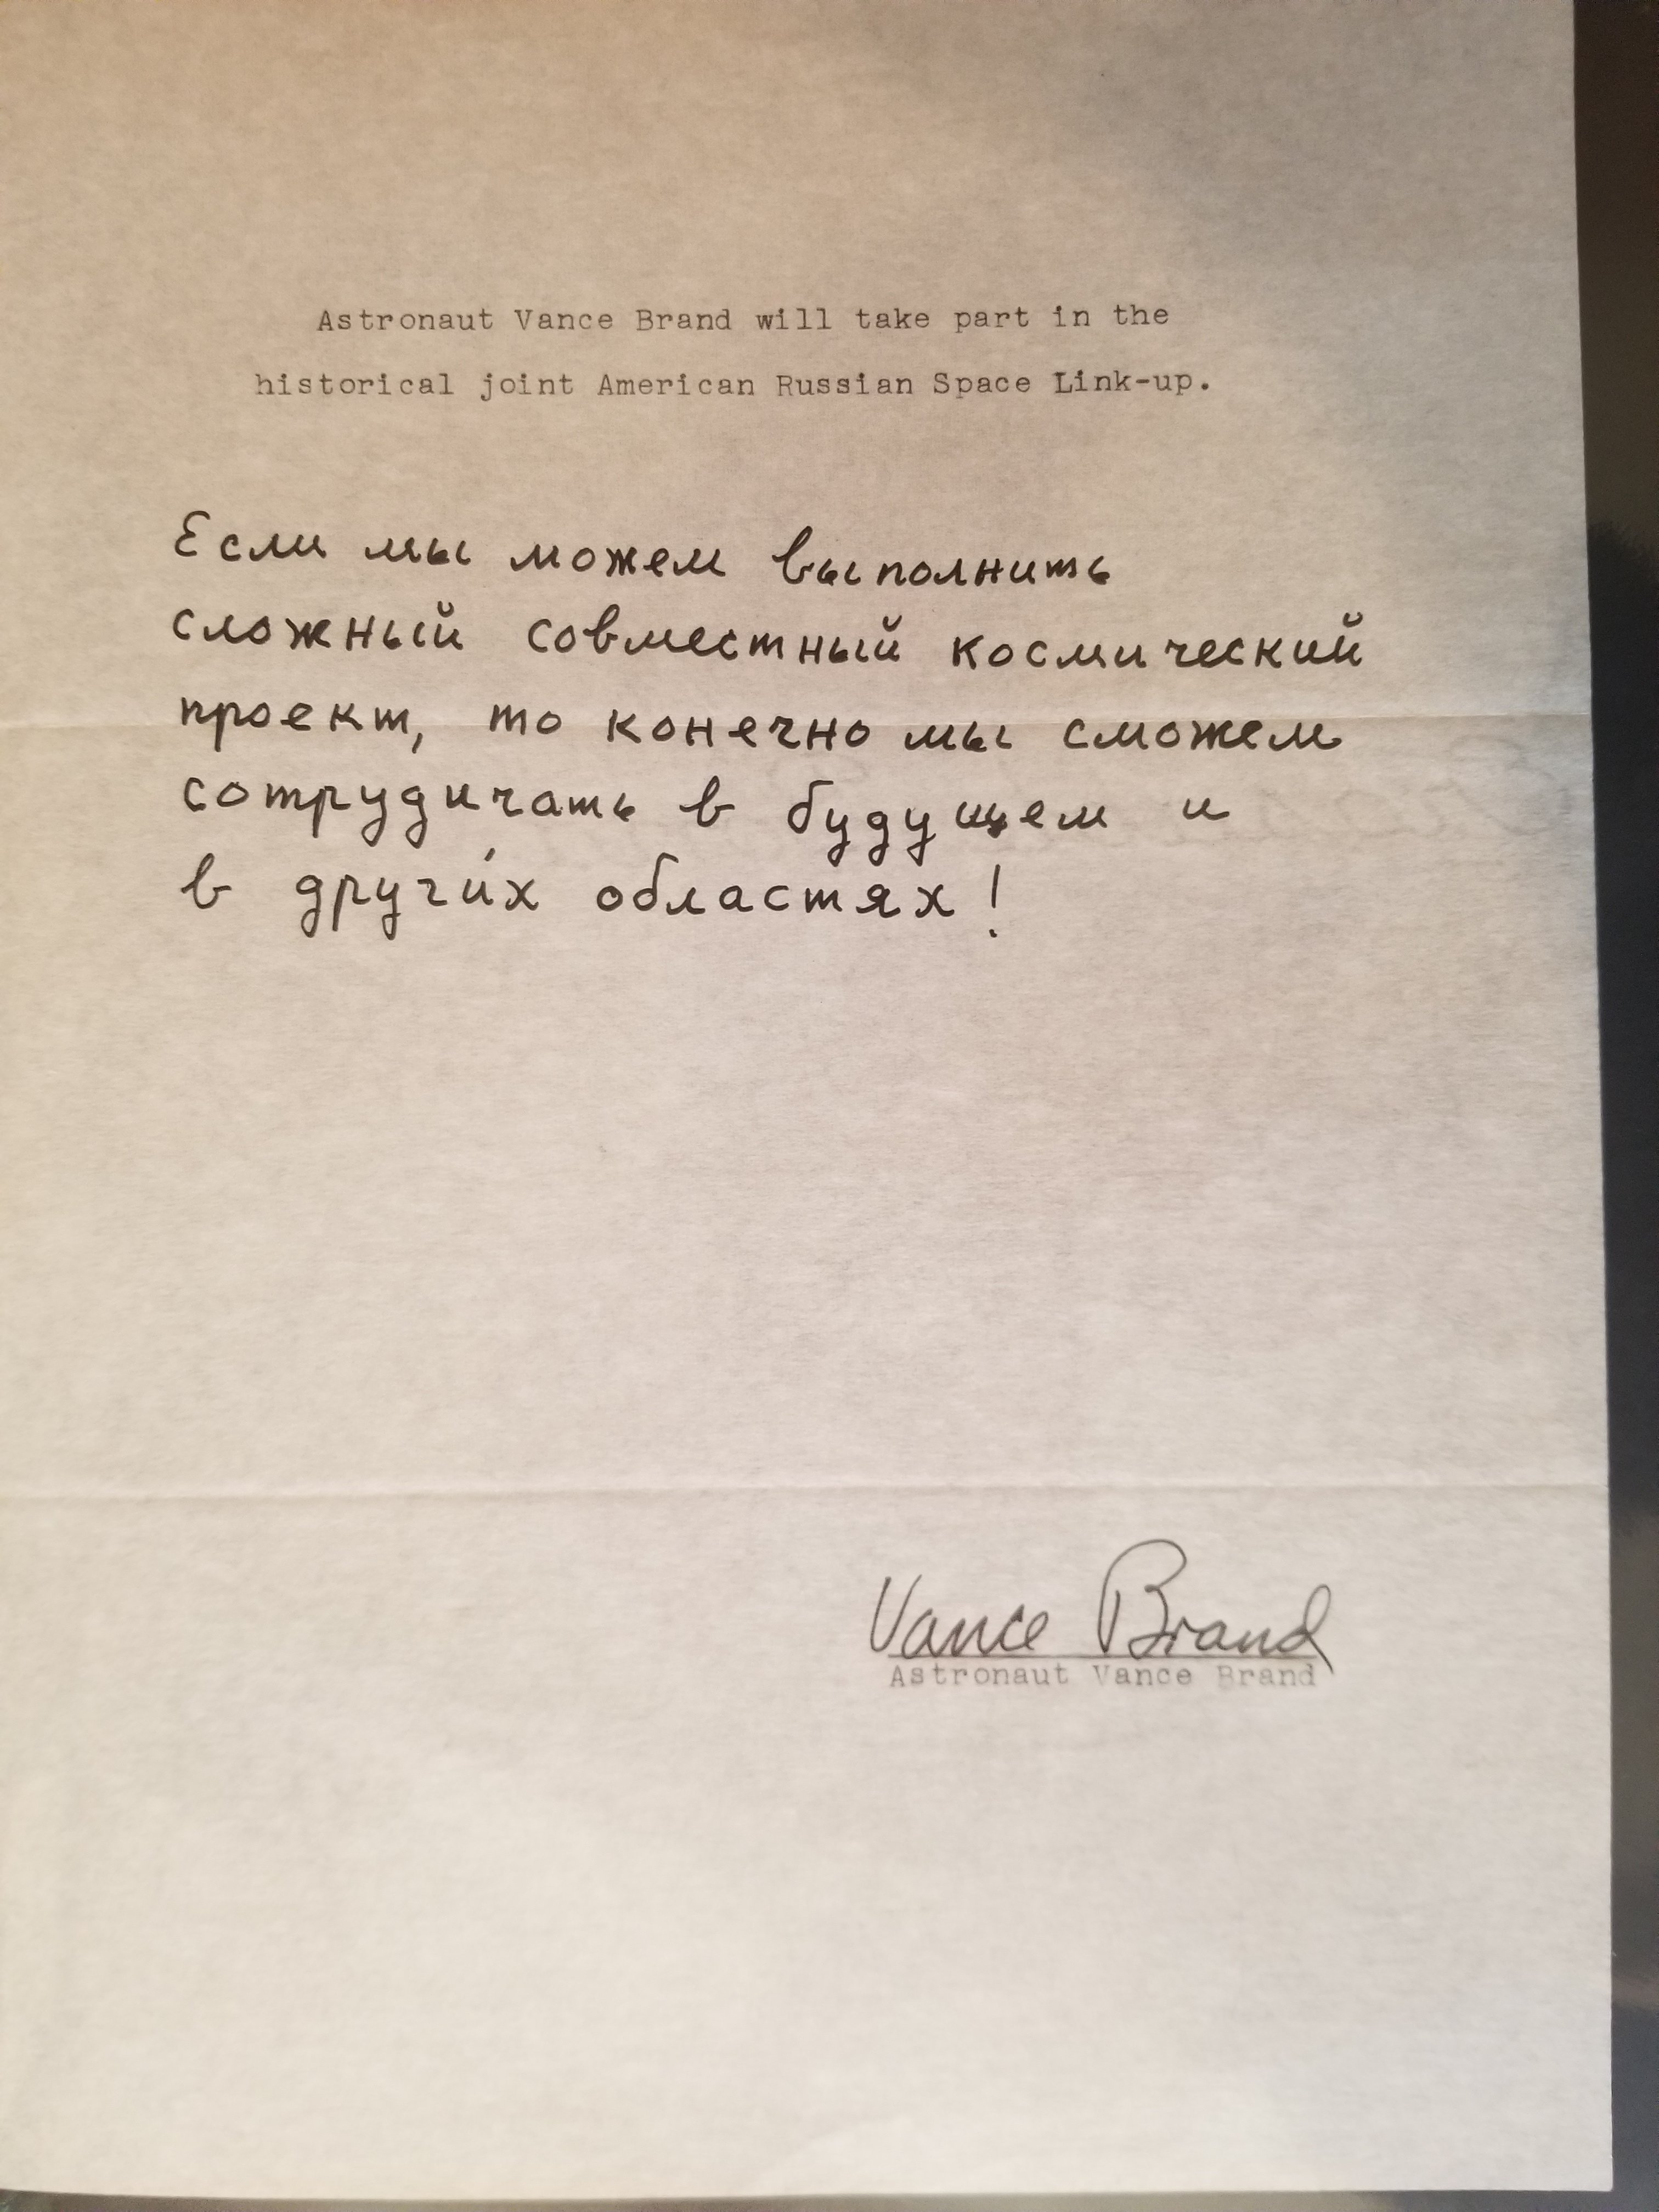 Astronaut Vance Brand will take part in the
historical joint American Russian Space Link-up.
Если мы можем выполнить
сложный совместный космический
проект, то конечно мы сможем
сотрудичать в будущем и
в други́х областях!
Vance Brand
Astronaut Vance Brand